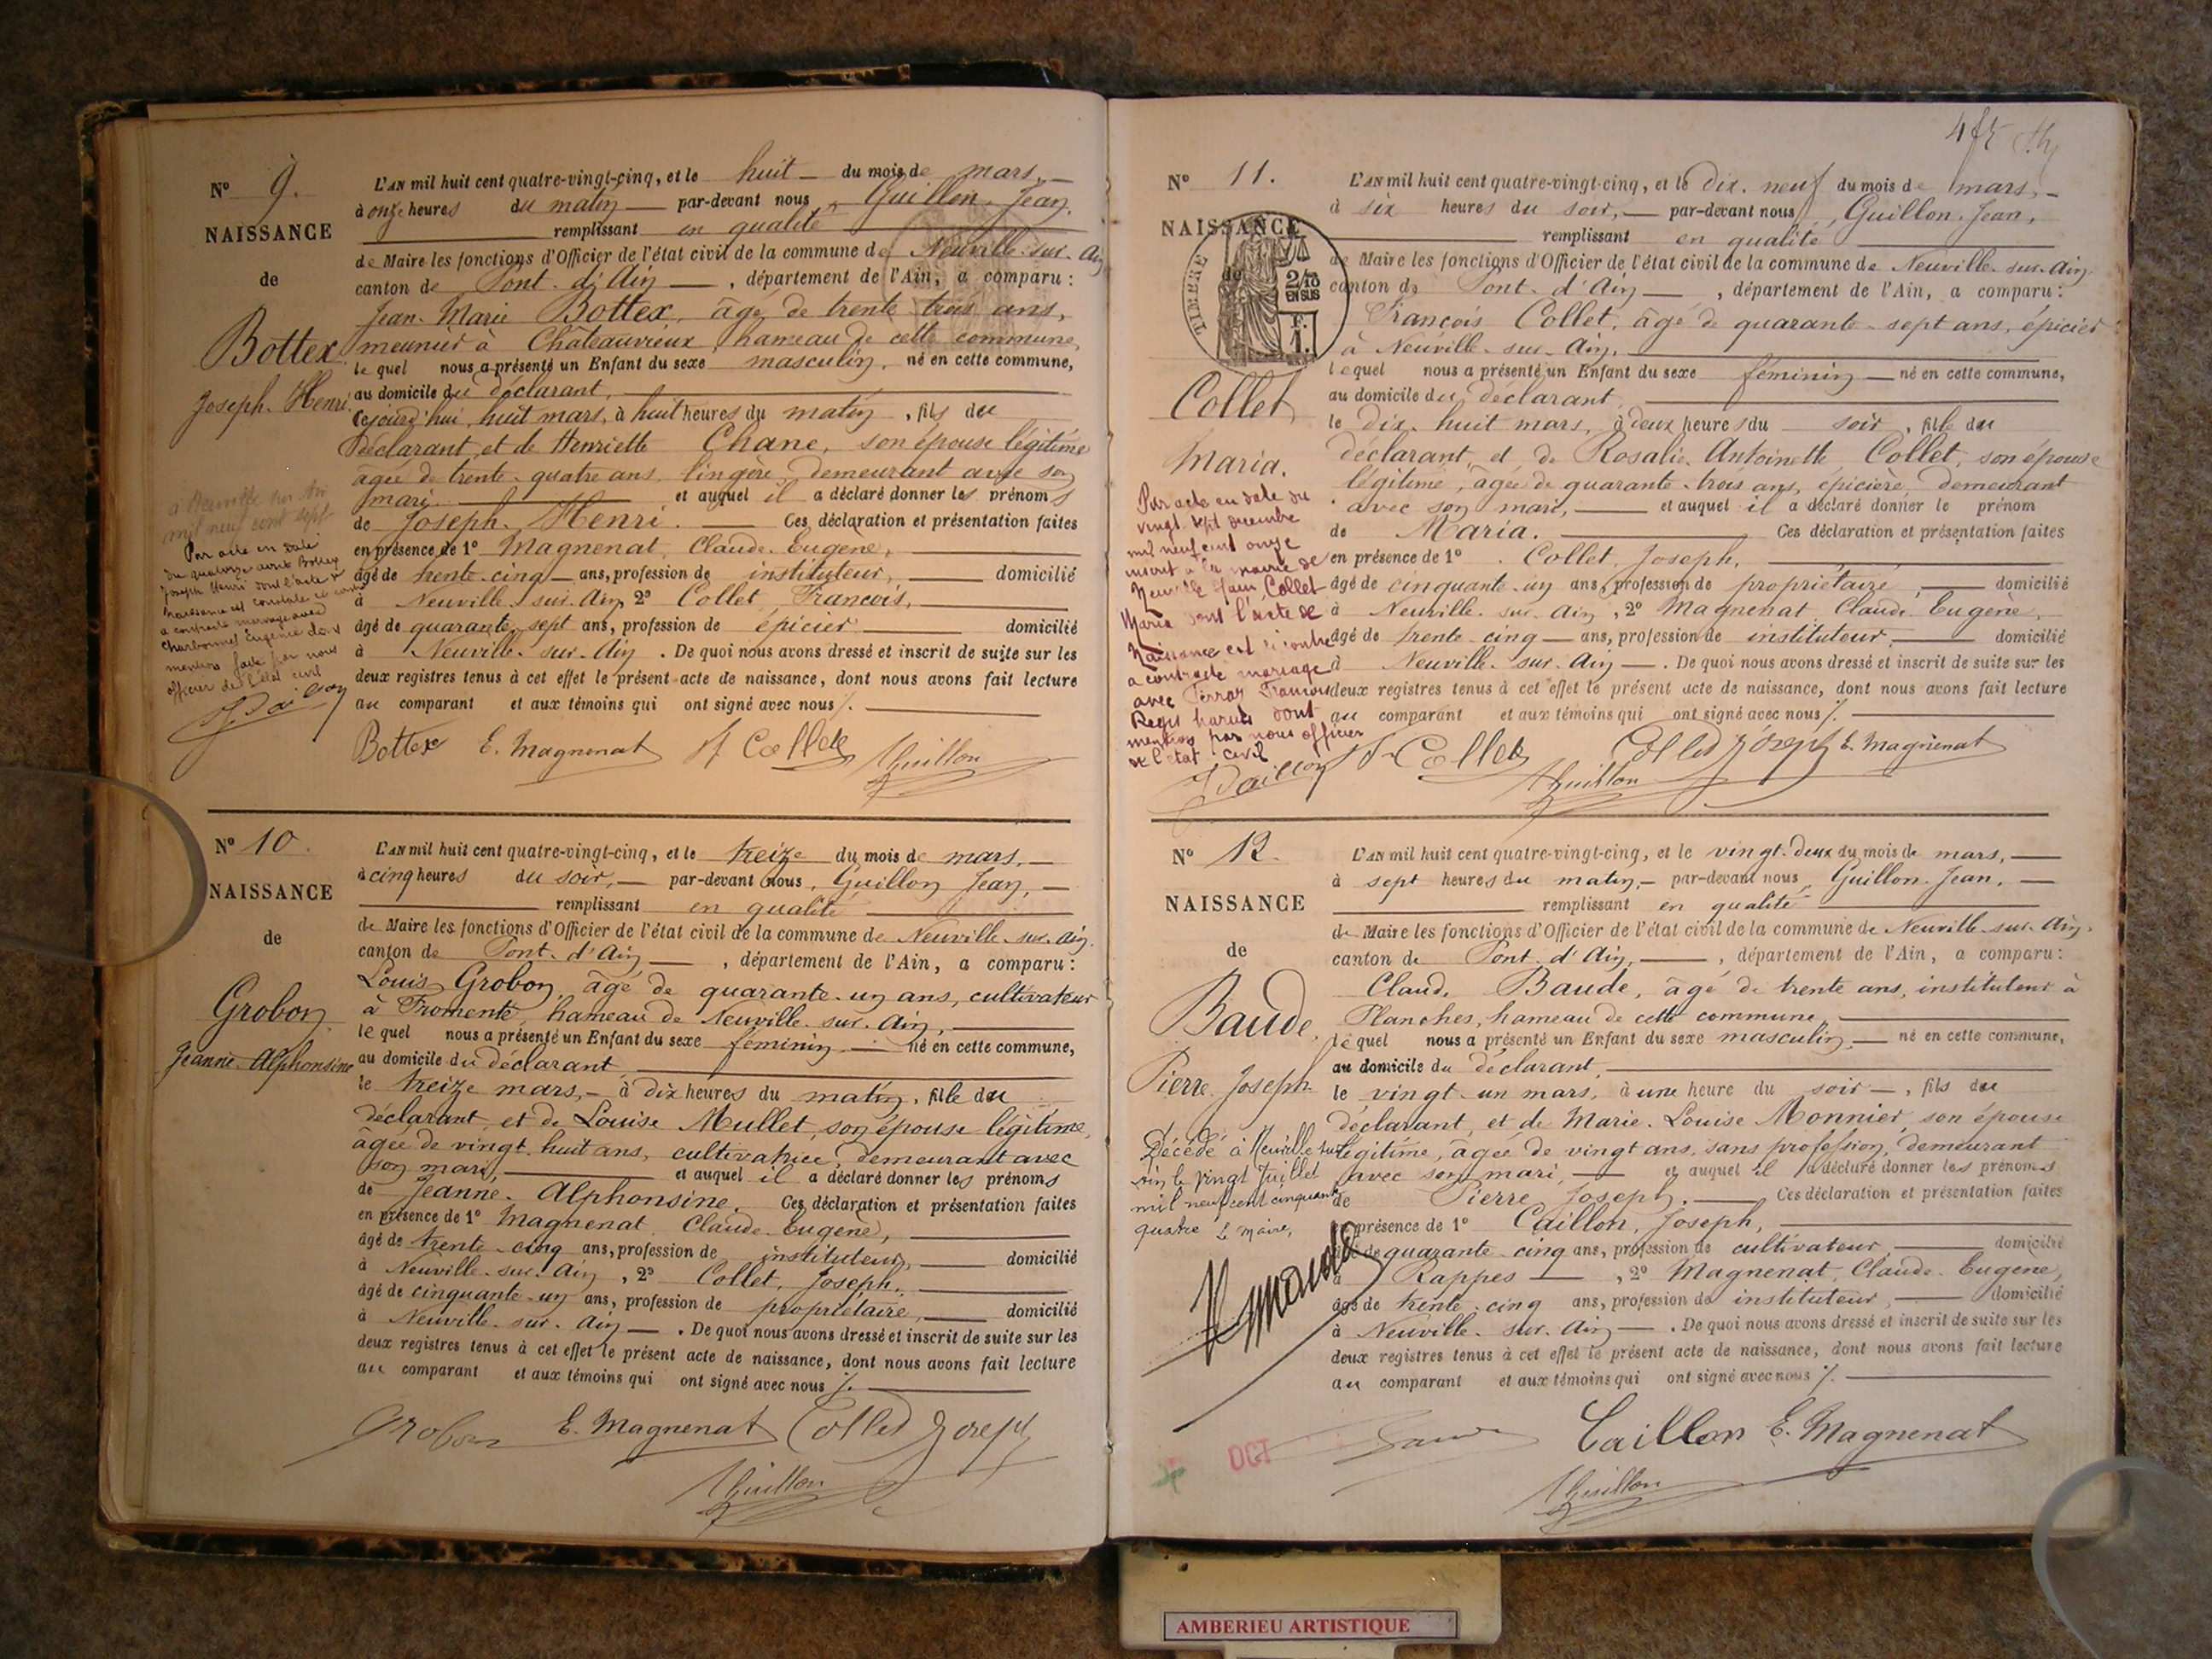 Nº 9.
NAISSANCE
de
Bottex
Joseph. Henri
à Neuville sur Ain
mil neuf cent sept
Par acte en date
du quatorze avril Bottex
Joseph Henri dont l'acte de
naissance est constaté ci contre
a contracté mariage avec
Charbonnel Eugénie dont
mention faite par nous
officier de l'état civil
L'AN mil huit cent quatre-vingt-cinq, et le huit du mois de mars,
à onze heures du matin par-devant nous, Guillon, Jean,
remplissant en qualité
de Maire les fonctions d'Officier de l'état civil de la commune de Neuville-sur-Ain
canton de Pont-d'Ain, département de l'Ain, a comparu :
Jean-Marie Bottex, âgé de trente trois ans,
meunier à Châteauvieux, hameau de cette commune,
lequel nous a présenté un Enfant du sexe masculin, né en cette commune,
au domicile du déclarant,
Cejourd'hui, huit mars, à huit heures du matin, fils du
déclarant, et de Henriette Chane, son épouse légitime
âgée de trente-quatre ans, lingère, demeurant avec son
mari. et auquel il a déclaré donner les prénoms
de Joseph-Henri. Ces déclaration et présentation faites
en présence de 1º Magnenat, Claude-Eugène,
âgé de trente-cinq ans, profession de instituteur, domicilié
à Neuville-sur-Ain, 2º Collet, François,
âgé de quarante-sept ans, profession de épicier domicilié
à Neuville-sur-Ain. De quoi nous avons dressé et inscrit de suite sur les
deux registres tenus à cet effet le présent acte de naissance, dont nous avons fait lecture
au comparant et aux témoins qui ont signé avec nous ./.
Bottex E. Magnenat F Collet JGuillon
Nº 10.
NAISSANCE
de
Grobon
Jeanne-Alphonsine
L'AN mil huit cent quatre-vingt-cinq, et le treize du mois de mars,
à cinq heures du soir, par-devant nous, Guillon, Jean,
remplissant en qualité
de Maire les fonctions d'Officier de l'état civil de la commune de Neuville-sur-Ain.
canton de Pont-d'Ain, département de l'Ain, a comparu :
Louis Grobon, âgé de quarante-un ans, cultivateur
à Fromente, hameau de Neuville-sur-Ain,
lequel nous a présenté un Enfant du sexe féminin, né en cette commune,
au domicile du déclarant,
le treize mars, à dix heures du matin, fille du
déclarant, et de Louise Mullet, son épouse légitime,
âgée de vingt-huit ans, cultivatrice, demeurant avec
son mari, et auquel il a déclaré donner les prénoms
de Jeanne-Alphonsine. Ces déclaration et présentation faites
en présence de 1º Magnenat, Claude-Eugène,
âgé de trente-cinq ans, profession de instituteur, domicilié
à Neuville-sur-Ain, 2º Collet, Joseph,
âgé de cinquante-un ans, profession de propriétaire, domicilié
à Neuville-sur-Ain. De quoi nous avons dressé et inscrit de suite sur les
deux registres tenus à cet effet le présent acte de naissance, dont nous avons fait lecture
au comparant et aux témoins qui ont signé avec nous ./.
Grobon E. Magnenat Collet Joseph
JGuillon
Nº 11.
NAISSANCE
de
TIMBRE
2/10
EN SUS
F.
1.
Collet
Maria.
Par acte en date du
vingt sept décembre
mil neuf cent onze
inscrit à la mairie de
Neuville s/ain, Collet
Maria dont l'acte de
Naissance est ci contre
a contracté mariage
avec Terraz François
dont
mention par nous officier
de l'état civil
L'AN mil huit cent quatre-vingt-cinq, et le dix-neuf du mois de mars,
à six heures du soir, par-devant nous, Guillon, Jean,
remplissant en qualité
de Maire les fonctions d'Officier de l'état civil de la commune de Neuville-sur-Ain.
canton de Pont-d'Ain, département de l'Ain, a comparu :
François Collet, âgé de quarante-sept ans, épicier
à Neuville-sur-Ain,
lequel nous a présenté un Enfant du sexe féminin né en cette commune,
au domicile du déclarant,
le dix-huit mars, à deux heures du soir, fille du
déclarant, et de Rosalie-Antoinette Collet, son épouse
légitime, âgée de quarante-trois ans, épicière, demeurant
avec son mari, et auquel il a déclaré donner le prénom
de Maria. Ces déclaration et présentation faites
en présence de 1º Collet, Joseph,
âgé de cinquante-un ans, profession de propriétaire, domicilié
à Neuville-sur-Ain, 2º Magnenat, Claude-Eugène,
âgé de trente-cinq ans, profession de instituteur, domicilié
à Neuville-sur-Ain. De quoi nous avons dressé et inscrit de suite sur les
deux registres tenus à cet effet le présent acte de naissance, dont nous avons fait lecture
au comparant et aux témoins qui ont signé avec nous ./.
F Collet Collet Joseph E. Magnenat
JGuillon
Nº 12.
NAISSANCE
de
Baude,
Pierre-Joseph
Décédé à Neuville sur
Ain le vingt Juillet
mil neuf cent cinquante
quatre Le Maire,
L'AN mil huit cent quatre-vingt-cinq, et le vingt-deux du mois de mars,
à sept heures du matin, par-devant nous, Guillon, Jean,
remplissant en qualité
de Maire les fonctions d'Officier de l'état civil de la commune de Neuville-sur-Ain,
canton de Pont-d'Ain, département de l'Ain, a comparu :
Claude Baude, âgé de trente ans, instituteur à
Planches, hameau de cette commune,
lequel nous a présenté un Enfant du sexe masculin, né en cette commune,
au domicile du déclarant,
le vingt-un mars, à une heure du soir, fils du
déclarant, et de Marie-Louise Monnier, son épouse
légitime, âgée de vingt ans, sans profession, demeurant
avec son mari, et auquel il a déclaré donner les prénoms
de Pierre-Joseph. Ces déclaration et présentation faites
en présence de 1º Caillon, Joseph,
âgé de quarante-cinq ans, profession de cultivateur, domicilié
à Rappes, 2º Magnenat, Claude-Eugène,
âgé de trente-cinq ans, profession de instituteur, domicilié
à Neuville-sur-Ain. De quoi nous avons dressé et inscrit de suite sur les
deux registres tenus à cet effet le présent acte de naissance, dont nous avons fait lecture
au comparant et aux témoins qui ont signé avec nous ./.
OCT
Caillon E. Magnenat
JGuillon
AMBERIEU ARTISTIQUE